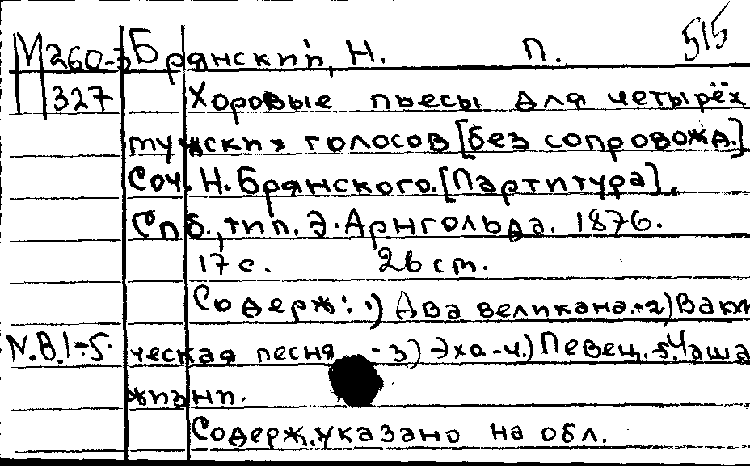 М260-3 Брянский, Н. П. 515
327 Хоровые пьесы для четырёх
мужских голосов [без сопровожд.]
Соч. Н. Брянского. [Партитура].
Спб., тип. Э. Арнгольда. 1876.
17 с. 26 cm.
Содерж: 1) Два великана. -2) Вакхи-
N.B.1-5. ческая песня -3) Эха -4.) Певец. -5. Чаша
жизни.
Содерж. указано на обл.